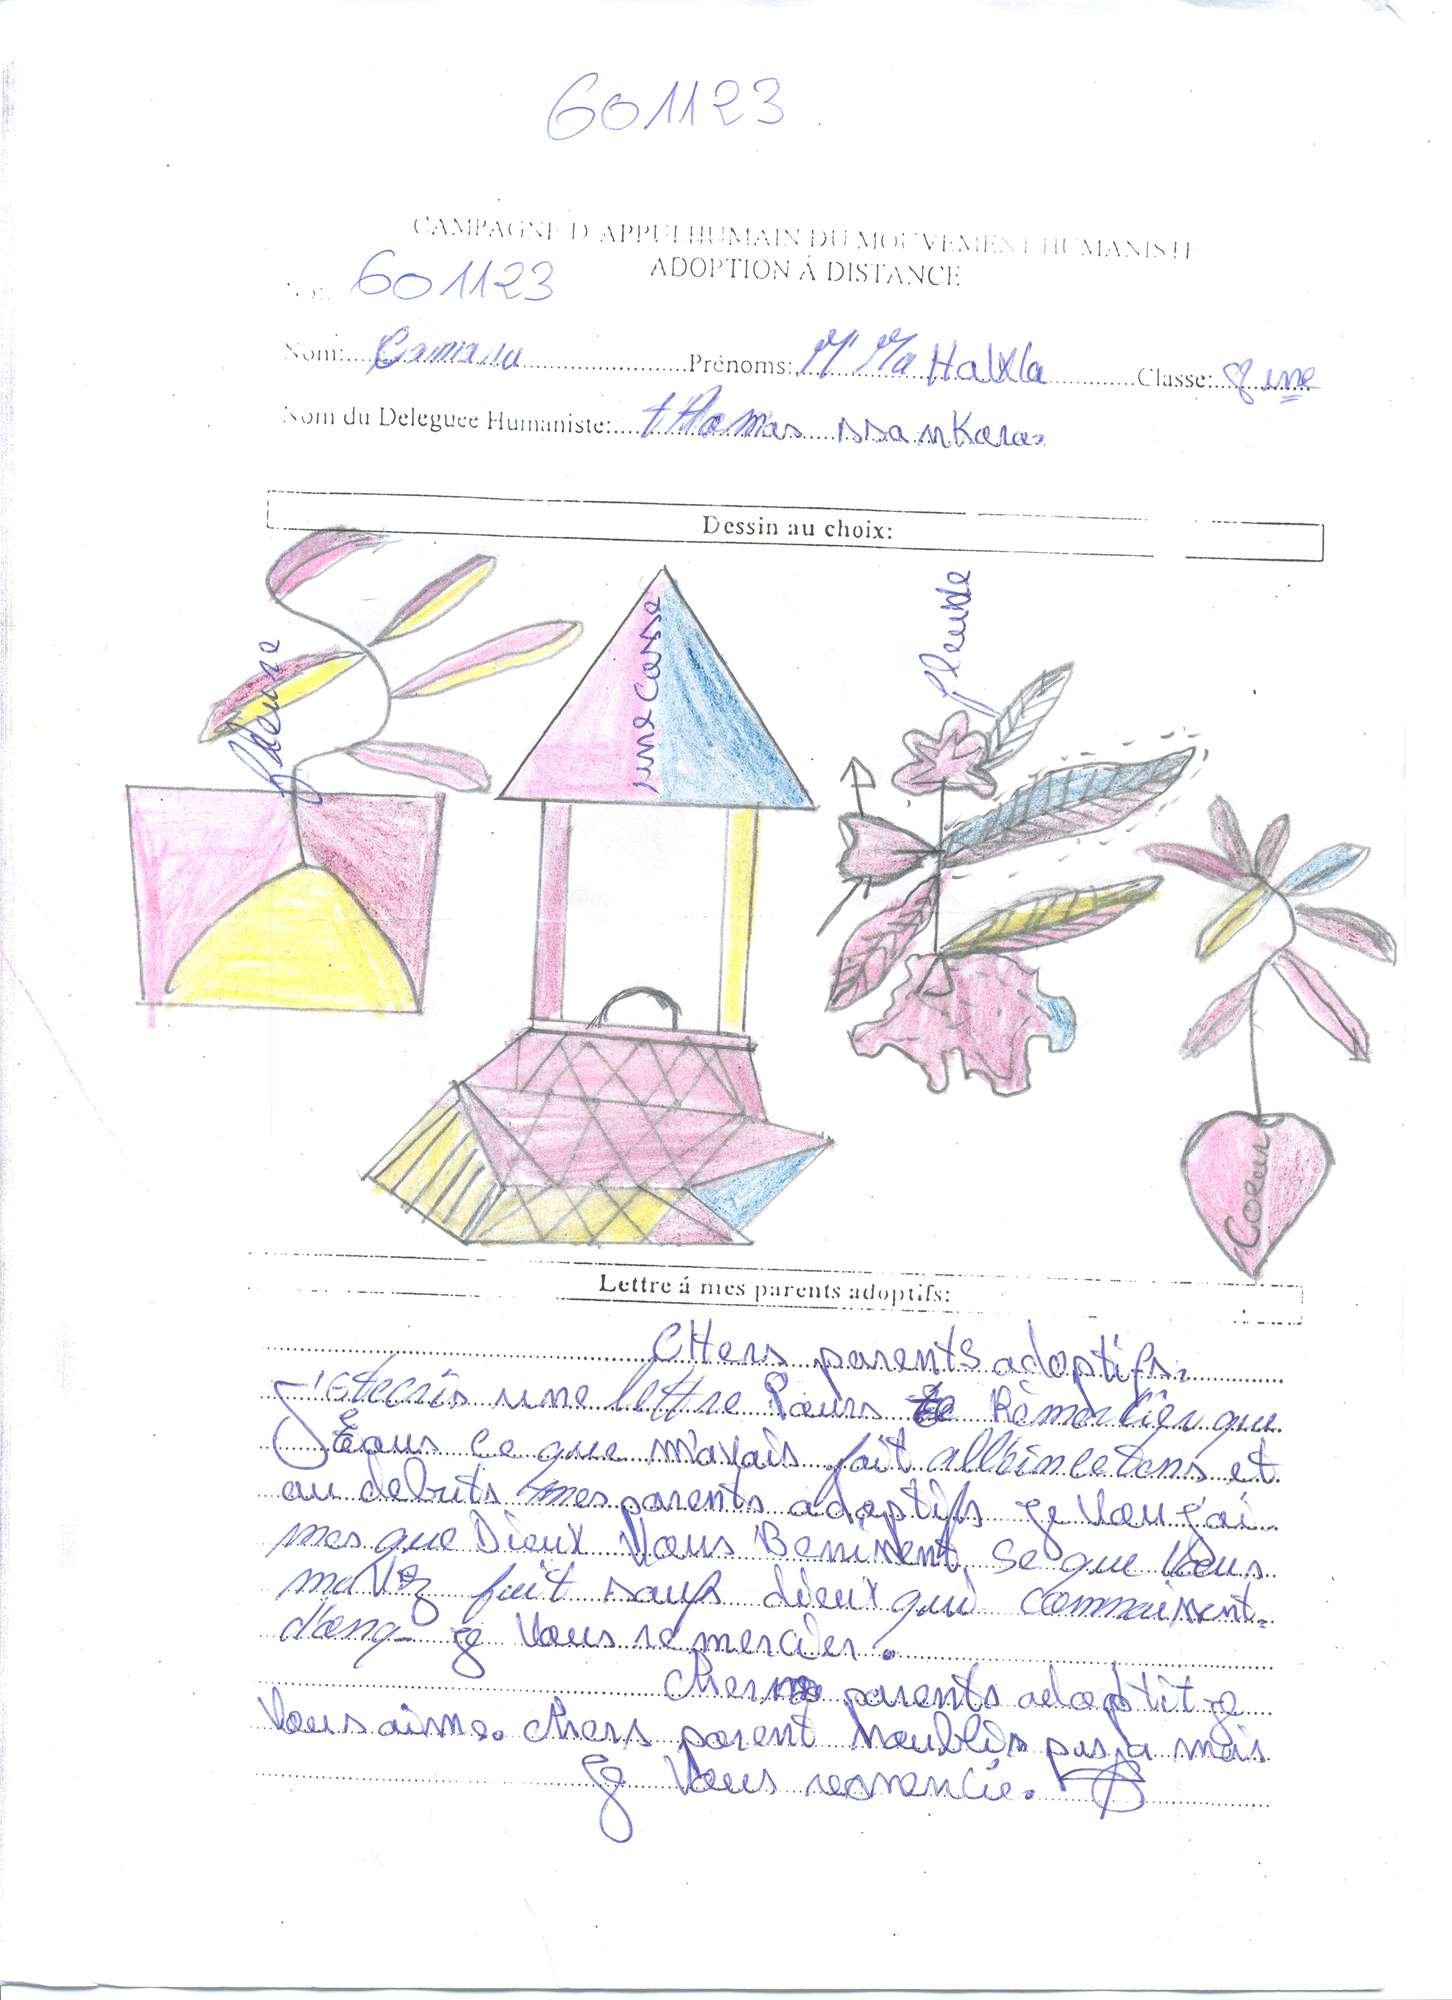 601123
CAMPAGNE D'APPUI HUMAIN DU MOUVEMENT HUMANISTE
ADOPTION Á DISTANCE
601123
Nom: Camara Prénoms: M'Ma Hawa Classe: 8 eme
Nom du Deleguee Humaniste: tHomas ssankara
Dessin au choix:
fleure
une casse
fleure
Coeur
Lettre á mes parents adoptifs:
CHers parents adoptifs.
J'etecris une lettre Pours Rémercier que
tous ce que m'avais fait et
au debuts mes parents adoptifs je Vou j'ai
mes que Dieux Vous Bénissent se que Vous
mavez fait sauf dieux qui connaissent
d'onq je Vous remercier.
Chers parents adoptit je
Vous aime. chers parent n'oublis pas ja mais
je Vous remercie.